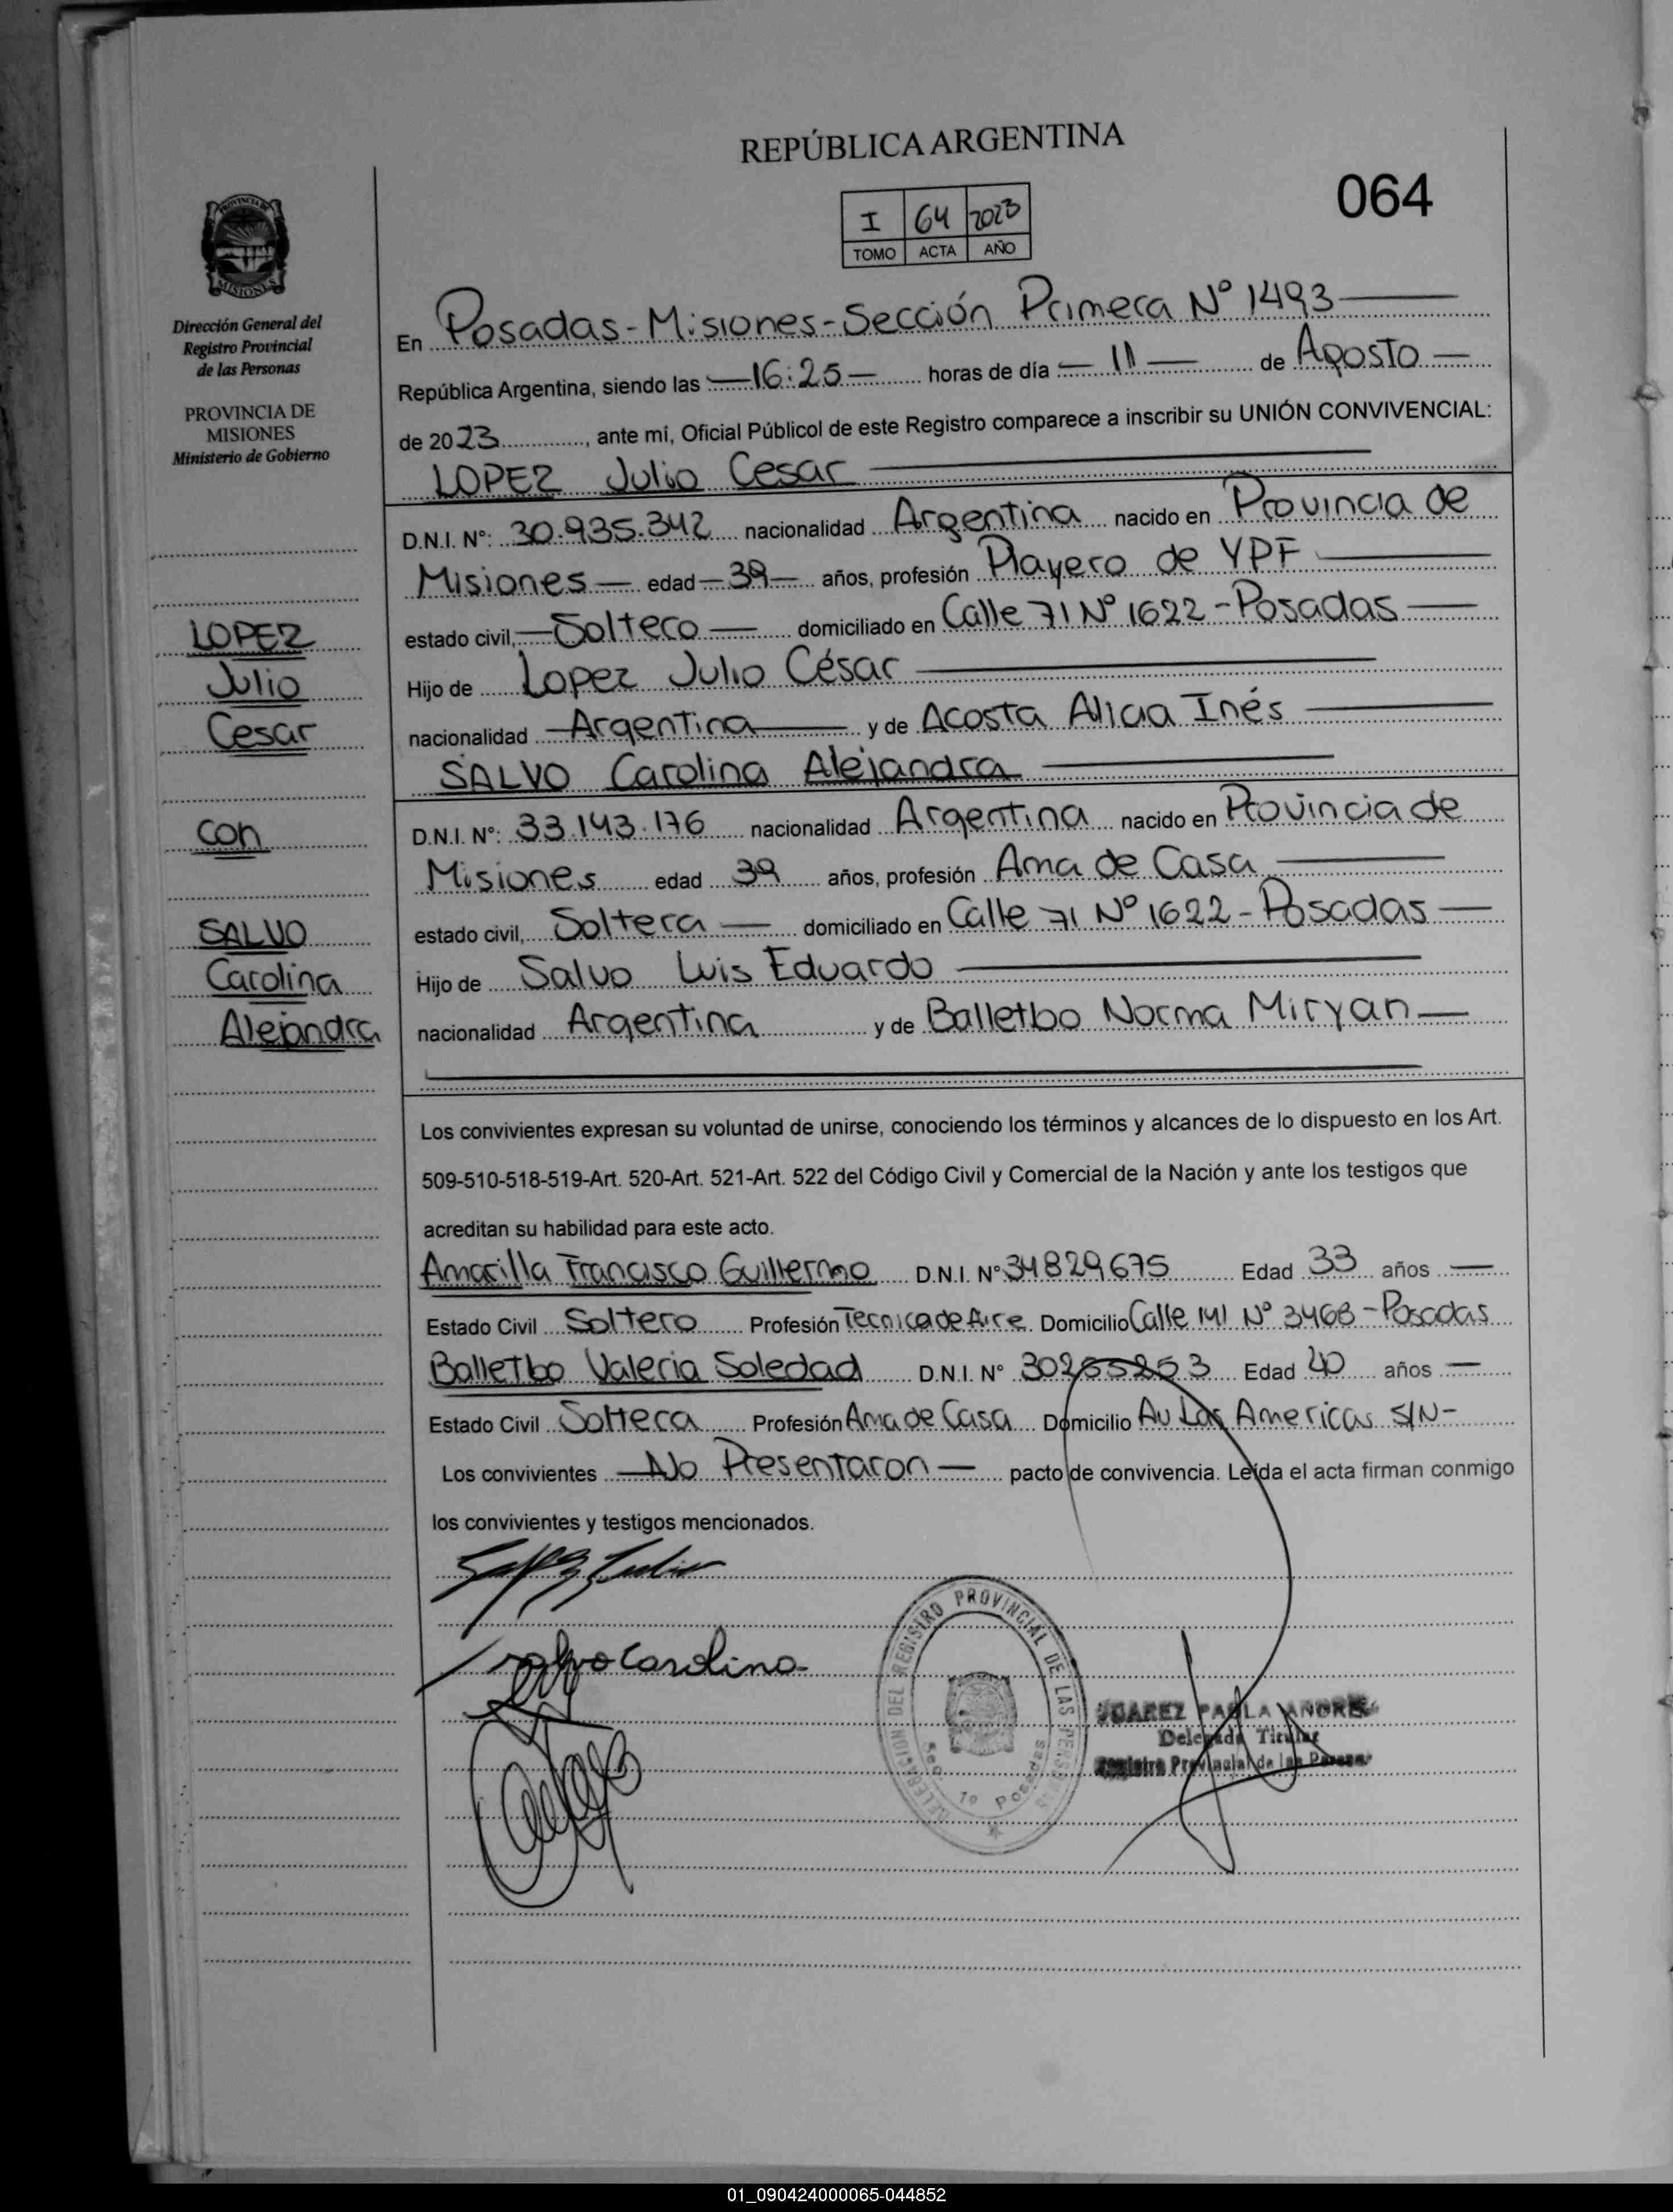 REPÚBLICA ARGENTINA
064
I 64 2023
TOMO ACTA AÑO
PROVINCIA DE
MISIONES
Dirección General del
Registro Provincial
de las Personas
PROVINCIA DE
MISIONES
Ministerio de Gobierno
LOPEZ
Julio
Cesar
con
SALVO
Carolina
Alejandra
En Posadas - Misiones - Sección Primera N° 1493
República Argentina, siendo las 16:25 horas de día 11 de Agosto
de 2023, ante mí, Oficial Públicol de este Registro comparece a inscribir su UNIÓN CONVIVENCIAL:
LOPEZ Julio Cesar
D.N.I. N°: 30.935.342 nacionalidad Argentina nacido en Provincia de
Misiones edad 39 años, profesión Playero de YPF
estado civil, Soltero domiciliado en Calle 71 N° 1622 - Posadas
Hijo de Lopez Julio César
nacionalidad Argentina y de Acosta Alicia Inés
SALVO Carolina Alejandra
D.N.I. N°: 33.143.176 nacionalidad Argentina nacido en Provincia de
Misiones edad 39 años, profesión Ama de Casa
estado civil, Soltera domiciliado en Calle 71 N° 1622 - Posadas
Hijo de Salvo Luis Eduardo
nacionalidad Argentina y de Balletbo Norma Miryan
Los convivientes expresan su voluntad de unirse, conociendo los términos y alcances de lo dispuesto en los Art.
509-510-518-519-Art. 520-Art. 521-Art. 522 del Código Civil y Comercial de la Nación y ante los testigos que
acreditan su habilidad para este acto.
Amarilla Francisco Guillermo D.N.I. N° 34829675 Edad 33 años
Estado Civil Soltero Profesión Tecnica de Aire Domicilio Calle 141 N° 3468 - Posadas
Balletbo Valeria Soledad D.N.I. N° 30255253 Edad 40 años
Estado Civil Soltera Profesión Ama de Casa Domicilio Av Las Americas S/N-
Los convivientes No Presentaron pacto de convivencia. Leída el acta firman conmigo
los convivientes y testigos mencionados.
Lopez Julio
Salvo Carolina
DELEGACION DEL REGISTRO PROVINCIAL DE LAS PERSONAS
Sec. 1° Posadas
JUAREZ PAOLA ANDREA
Delegada Titular
Registro Provincial de las Personas
01_090424000065-044852